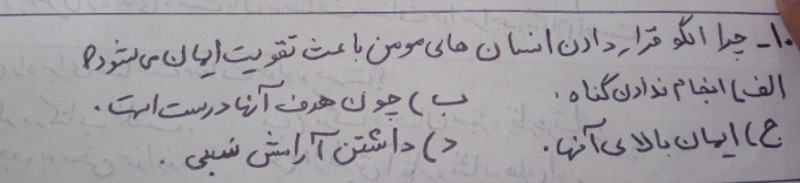 ۱۰- چرا الگو قرار دادن انسان های مومن باعث تقویت ایمان می شود؟
الف) انجام ندادن گناه. ب) چون هدف آنها درست است.
ج) ایمان بالای آنها. د) داشتن آرامش نسبی.